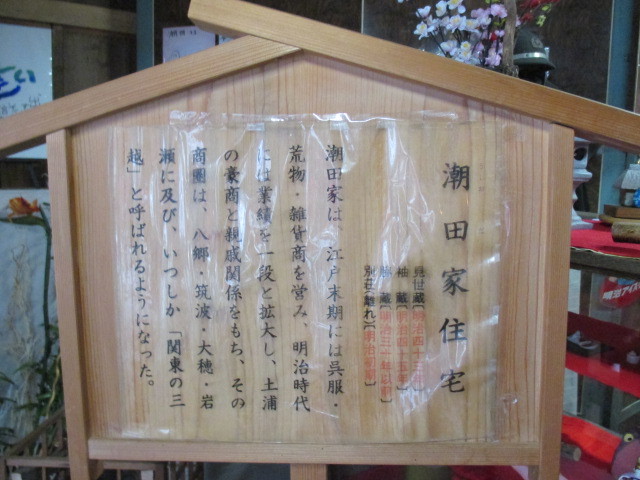 潮田家住宅
見世蔵〔明治四十三年〕
袖　蔵〔明治四十五年〕
脇　蔵〔明治三十年以前〕
別荘（離れ）〔明治
潮田家は、江戸末期には呉服・
荒物・雑貨商を営み、明治時代
には業績を一段と拡大し、土浦
の豪商と親戚関係をもち、その
商圏は、八郷・筑波・大穂・岩
瀬に及び、いつしか「関東の三
越」と呼ばれるようになった。